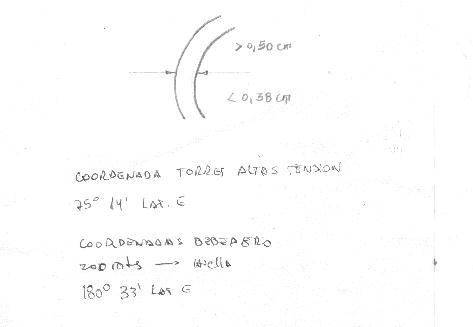 > 0,50 cm
< 0,38 cm
COORDENADA TORRES ALTAS TENSION
75° 14' LAT. E
COORDENADAS BEBEDERO
200 mts → Huella
180° 33' LAT E